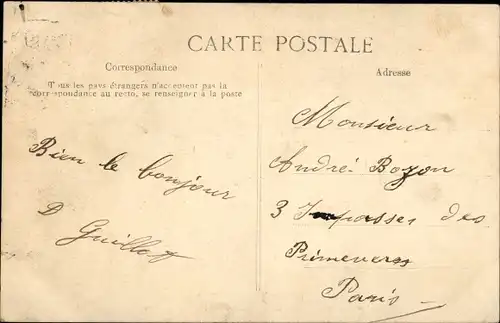 CARTE POSTALE
Correspondance
Tous les pays étrangers n'acceptent pas la
correspondance au recto, se renseigner à la poste
Bien le bonjour
D Guillot
Adresse
Monsieur
André Bozon
3 Impasses des
Primevères
Paris